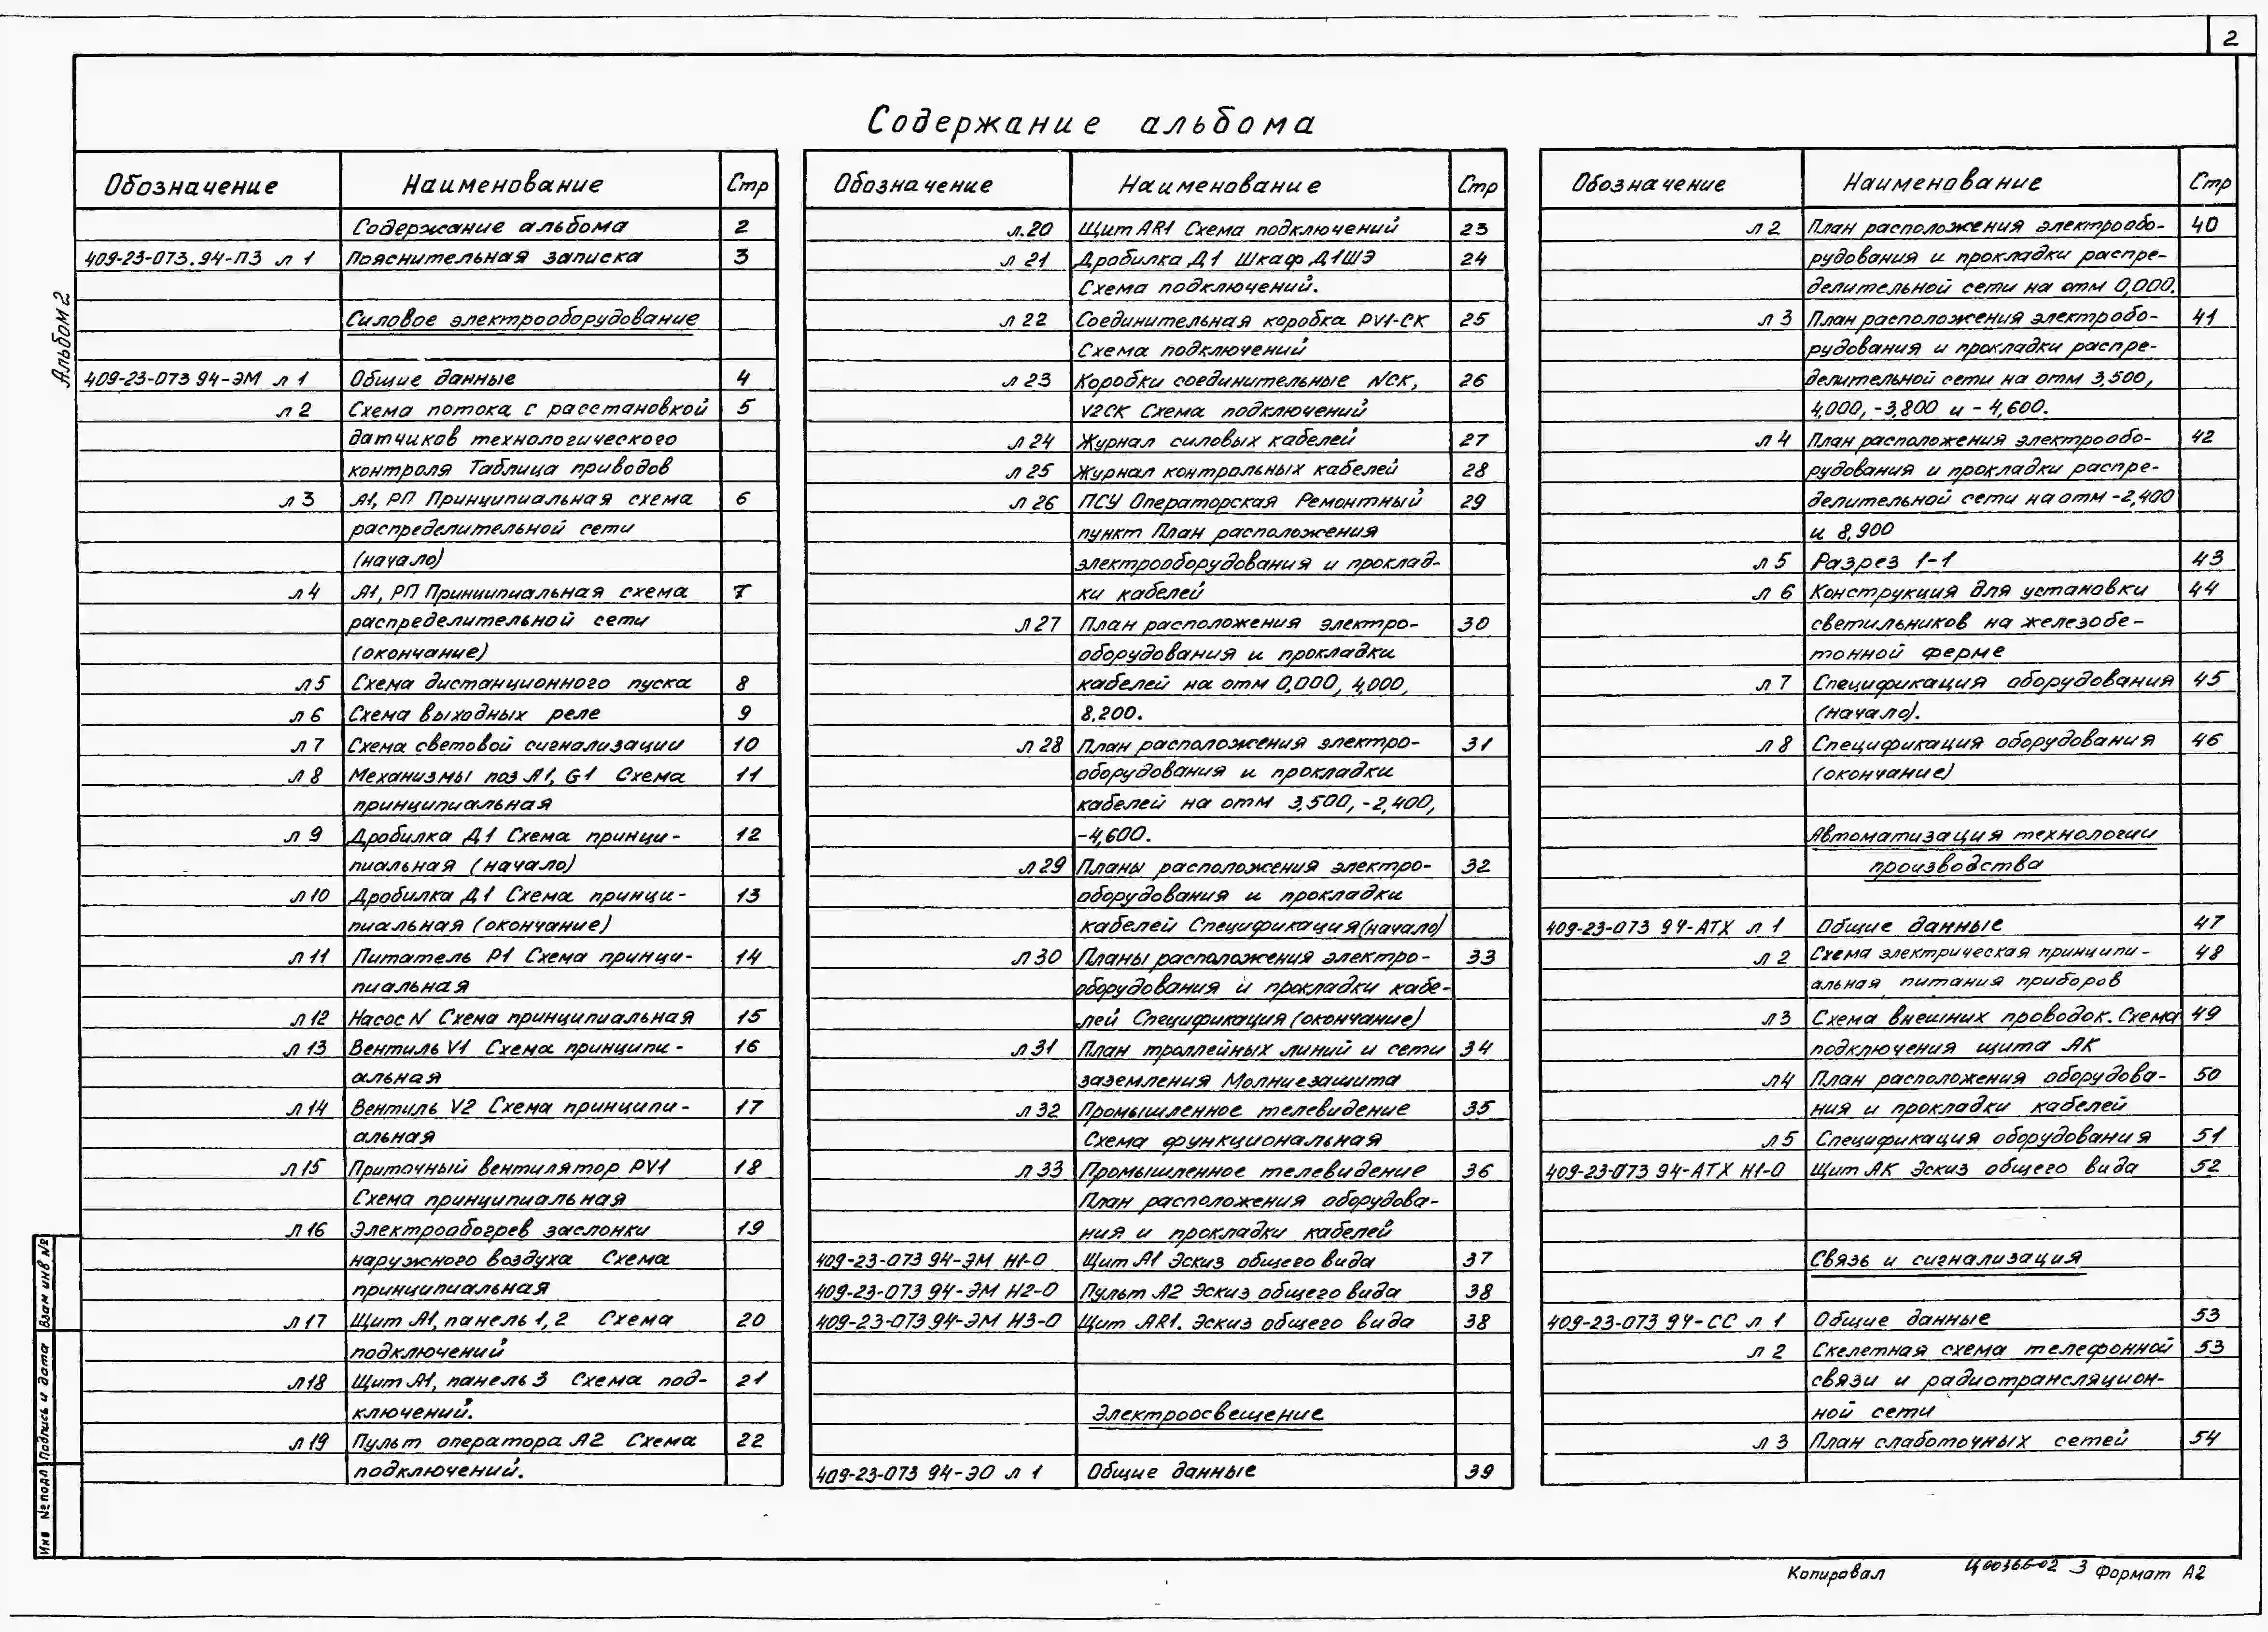 2
Содержание альбома
Альбом 2
Обозначение Наименование Стр
Содержание альбома 2
409-23-073.94-ПЗ л 1 Пояснительная записка 3
Силовое электрооборудование
409-23-073 94-ЭМ л 1 Общие данные 4
л 2 Схема потока с расстановкой 5
датчиков технологического
контроля Таблица приводов
л 3 А1, РП Принципиальная схема 6
распределительной сети
(начало)
л 4 А1, РП Принципиальная схема 7
распределительной сети
(окончание)
л 5 Схема дистанционного пуска 8
л 6 Схема выходных реле 9
л 7 Схема световой сигнализации 10
л 8 Механизмы поз А1, G1 Схема 11
принципиальная
л 9 Дробилка Д1 Схема принци-12
пиальная (начало)
л 10 Дробилка Д1 Схема принци- 13
пиальная (окончание)
л 11 Питатель Р1 Схема принци- 14
пиальная
л 12 Насос N Схема принципиальная 15
л 13 Вентиль V1 Схема принципи- 16
альная
л 14 Вентиль V2 Схема принципи- 17
альная
л 15 Приточный вентилятор PV1 18
Схема принципиальная
л 16 Электрообогрев заслонки 19
наружного воздуха Схема
принципиальная
л 17 Щит А1, панель 1, 2 Схема 20
подключений
л 18 Щит А1, панель 3 Схема под- 21
ключений.
л 19 Пульт оператора А2 Схема 22
подключений.
Обозначение Наименование Стр
л.20 Щит AR1 Схема подключений 23
л 21 Дробилка Д1 Шкаф Д1ШЭ 24
Схема подключений.
л 22 Соединительная коробка PV1-СК 25
Схема подключений
л 23 Коробки соединительные NСК, 26
V2СК Схема подключений
л 24 Журнал силовых кабелей 27
л 25 Журнал контрольных кабелей 28
л 26 ПСУ Операторская Ремонтный 29
пункт План расположения
электрооборудования и проклад-
ки кабелей
л 27 План расположения электро- 30
оборудования и прокладки
кабелей на отм 0,000, 4,000,
8,200.
л 28 План расположения электро- 31
оборудования и прокладки
кабелей на отм 3,500, -2,400,
-4,600.
л 29 Планы расположения электро- 32
оборудования и прокладки
кабелей Спецификация (начало)
л 30 Планы расположения электро- 33
оборудования и прокладки кабе-
лей Спецификация (окончание)
л 31 План троллейных линий и сети 34
заземления Молниезащита
л 32 Промышленное телевидение 35
Схема функциональная
л 33 Промышленное телевидение 36
План расположения оборудова-
ния и прокладки кабелей
409-23-073 94-ЭМ Н1-0 Щит А1 Эскиз общего вида 37
409-23-073 94-ЭМ Н2-0 Пульт А2 Эскиз общего вида 38
409-23-073 94-ЭМ Н3-0 Щит AR1. Эскиз общего вида 38
Электроосвещение
409-23-073 94-ЭО л 1 Общие данные 39
Обозначение Наименование Стр
л 2 План расположения электрообо- 40
рудования и прокладки распре-
делительной сети на отм 0,000.
л 3 План расположения электробо- 41
рудования и прокладки распре-
делительной сети на отм 3,500,
4,000, -3,800 и -4,600.
л 4 План расположения электрообо- 42
рудования и прокладки распре-
делительной сети на отм -2,400
и 8,900
л 5 Разрез 1-1 43
л 6 Конструкция для установки 44
светильников на железобе-
тонной ферме
л 7 Спецификация оборудования 45
(начало).
л 8 Спецификация оборудования 46
(окончание)
Автоматизация технологии
производства
409-23-073 94-АТХ л 1 Общие данные 47
л 2 Схема электрическая принципи- 48
альная питания приборов
л 3 Схема внешних проводок. Схема 49
подключения щита АК
л 4 План расположения оборудова- 50
ния и прокладки кабелей
л 5 Спецификация оборудования 51
409-23-073 94-АТХ Н1-0 Щит АК Эскиз общего вида 52
Связь и сигнализация
409-23-073 94-СС л 1 Общие данные 53
л 2 Скелетная схема телефонной 53
связи и радиотрансляцион-
ной сети
л 3 План слаботочных сетей 54
Взам инв №
Подпись и дата
Инв № подл
Копировал Ц00366-02 3 Формат А2